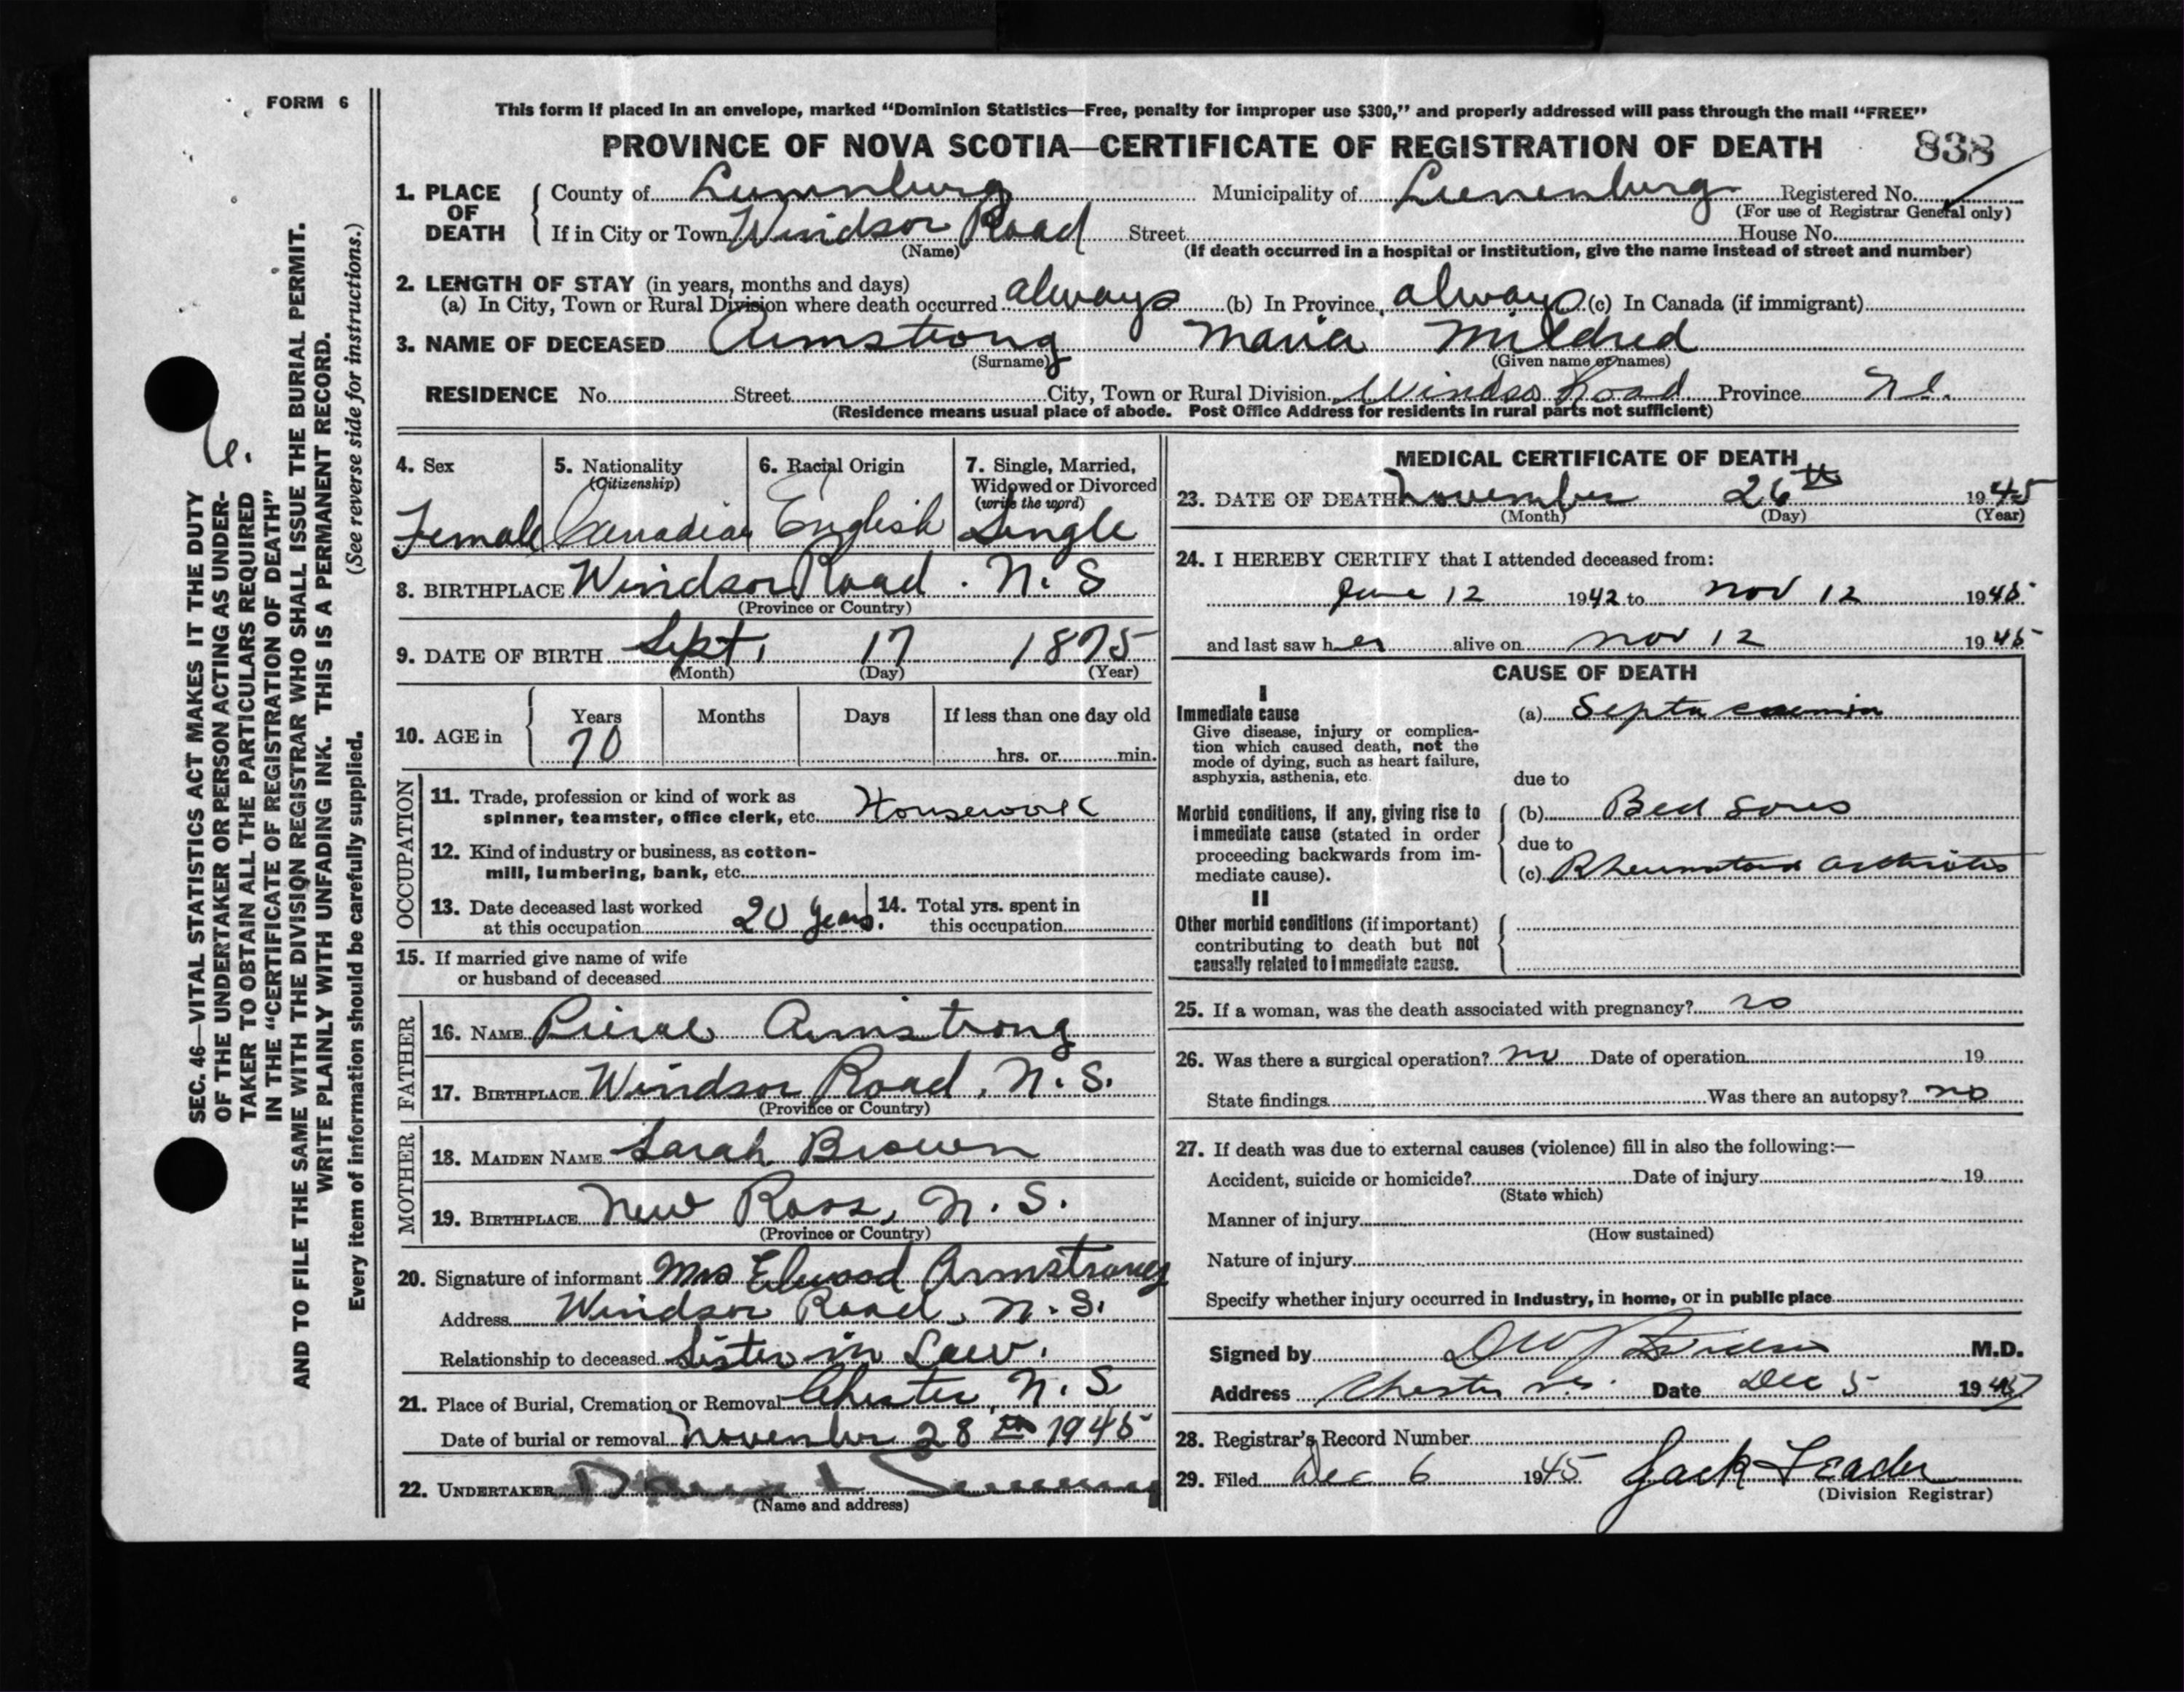 FORM 6
This form if placed in an envelope, marked “Dominion Statistics—Free, penalty for improper use $300,” and properly addressed will pass through the mail “FREE”
PROVINCE OF NOVA SCOTIA—CERTIFICATE OF REGISTRATION OF DEATH 838
1. PLACE OF DEATH County of Lunenburg Municipality of Lunenburg Registered No.
(For use of Registrar General only)
If in City or Town Windsor Road Street House No.
(Name) (If death occurred in a hospital or institution, give the name instead of street and number)
2. LENGTH OF STAY (in years, months and days)
(a) In City, Town or Rural Division where death occurred always (b) In Province always (c) In Canada (if immigrant)
3. NAME OF DECEASED Armstrong Maria Mildred
(Surname) (Given name or names)
RESIDENCE No. Street City, Town or Rural Division Windsor Road Province N.S.
(Residence means usual place of abode. Post Office Address for residents in rural parts not sufficient)
4. Sex Female
5. Nationality (Citizenship) Canadian
6. Racial Origin English
7. Single, Married, Widowed or Divorced (write the word) Single
8. BIRTHPLACE Windsor Road. N.S
(Province or Country)
9. DATE OF BIRTH Sept. 17 1875
(Month) (Day) (Year)
10. AGE in Years 70 Months Days If less than one day old hrs. or min.
OCCUPATION
11. Trade, profession or kind of work as
spinner, teamster, office clerk, etc. Housework
12. Kind of industry or business, as cotton-
mill, lumbering, bank, etc.
13. Date deceased last worked at this occupation 20 years.
14. Total yrs. spent in this occupation
15. If married give name of wife
or husband of deceased
FATHER
16. NAME Armstrong
17. BIRTHPLACE Windsor Road, N.S.
(Province or Country)
MOTHER
18. MAIDEN NAME Sarah Brown
19. BIRTHPLACE New Ross, N.S.
(Province or Country)
20. Signature of informant Mrs Elwood Armstrong
Address Windsor Road, N.S.
Relationship to deceased Sister in Law.
21. Place of Burial, Cremation or Removal Chester, N.S
Date of burial or removal November 28th 1945
22. UNDERTAKER
(Name and address)
MEDICAL CERTIFICATE OF DEATH
23. DATE OF DEATH November 26th 1945
(Month) (Day) (Year)
24. I HEREBY CERTIFY that I attended deceased from:
June 12 1942 to Nov 12 1945
and last saw her alive on Nov 12 1945
CAUSE OF DEATH
I
Immediate cause
Give disease, injury or complica-
tion which caused death, not the
mode of dying, such as heart failure,
asphyxia, asthenia, etc.
(a)
due to
Morbid conditions, if any, giving rise to
immediate cause (stated in order
proceeding backwards from im-
mediate cause).
(b) Bed Sores
due to
(c) Rheumatoid arthritis
II
Other morbid conditions (if important)
contributing to death but not
causally related to immediate cause.
25. If a woman, was the death associated with pregnancy? no
26. Was there a surgical operation? no Date of operation 19
State findings Was there an autopsy? no
27. If death was due to external causes (violence) fill in also the following:—
Accident, suicide or homicide? Date of injury 19
(State which)
Manner of injury
(How sustained)
Nature of injury
Specify whether injury occurred in industry, in home, or in public place
Signed by M.D.
Address Chester N.S. Date Dec 5 1945
28. Registrar's Record Number
29. Filed Dec 6 1945 Jack
(Division Registrar)
SEC. 46—VITAL STATISTICS ACT MAKES IT THE DUTY
OF THE UNDERTAKER OR PERSON ACTING AS UNDER-
TAKER TO OBTAIN ALL THE PARTICULARS REQUIRED
IN THE “CERTIFICATE OF REGISTRATION OF DEATH”
AND TO FILE THE SAME WITH THE DIVISION REGISTRAR WHO SHALL ISSUE THE BURIAL PERMIT.
WRITE PLAINLY WITH UNFADING INK. THIS IS A PERMANENT RECORD.
Every item of information should be carefully supplied. (See reverse side for instructions.)